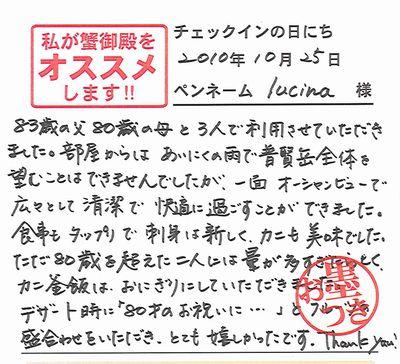 私が蟹御殿を
オススメ
します!!
チェックインの日にち
2010年10月25日
ペンネーム lucina 様
83歳の父80歳の母と3人で利用させていただき
ました。部屋からは あいにくの雨で普賢岳全体を
望むことはできませんでしたが、一面 オーシャンビューで
広々として 清潔で 快適に過ごすことができました。
食事も タップリで 刺身は新しく、カニも 美味でした。
ただ80歳を超えた二人には 量が多すぎ
カニ釜飯は、おにぎりにしていただき
デザート時に「80才のお祝いに…」と
盛合わせをいただき、とても 嬉しかったです。Thank you!
お墨つき